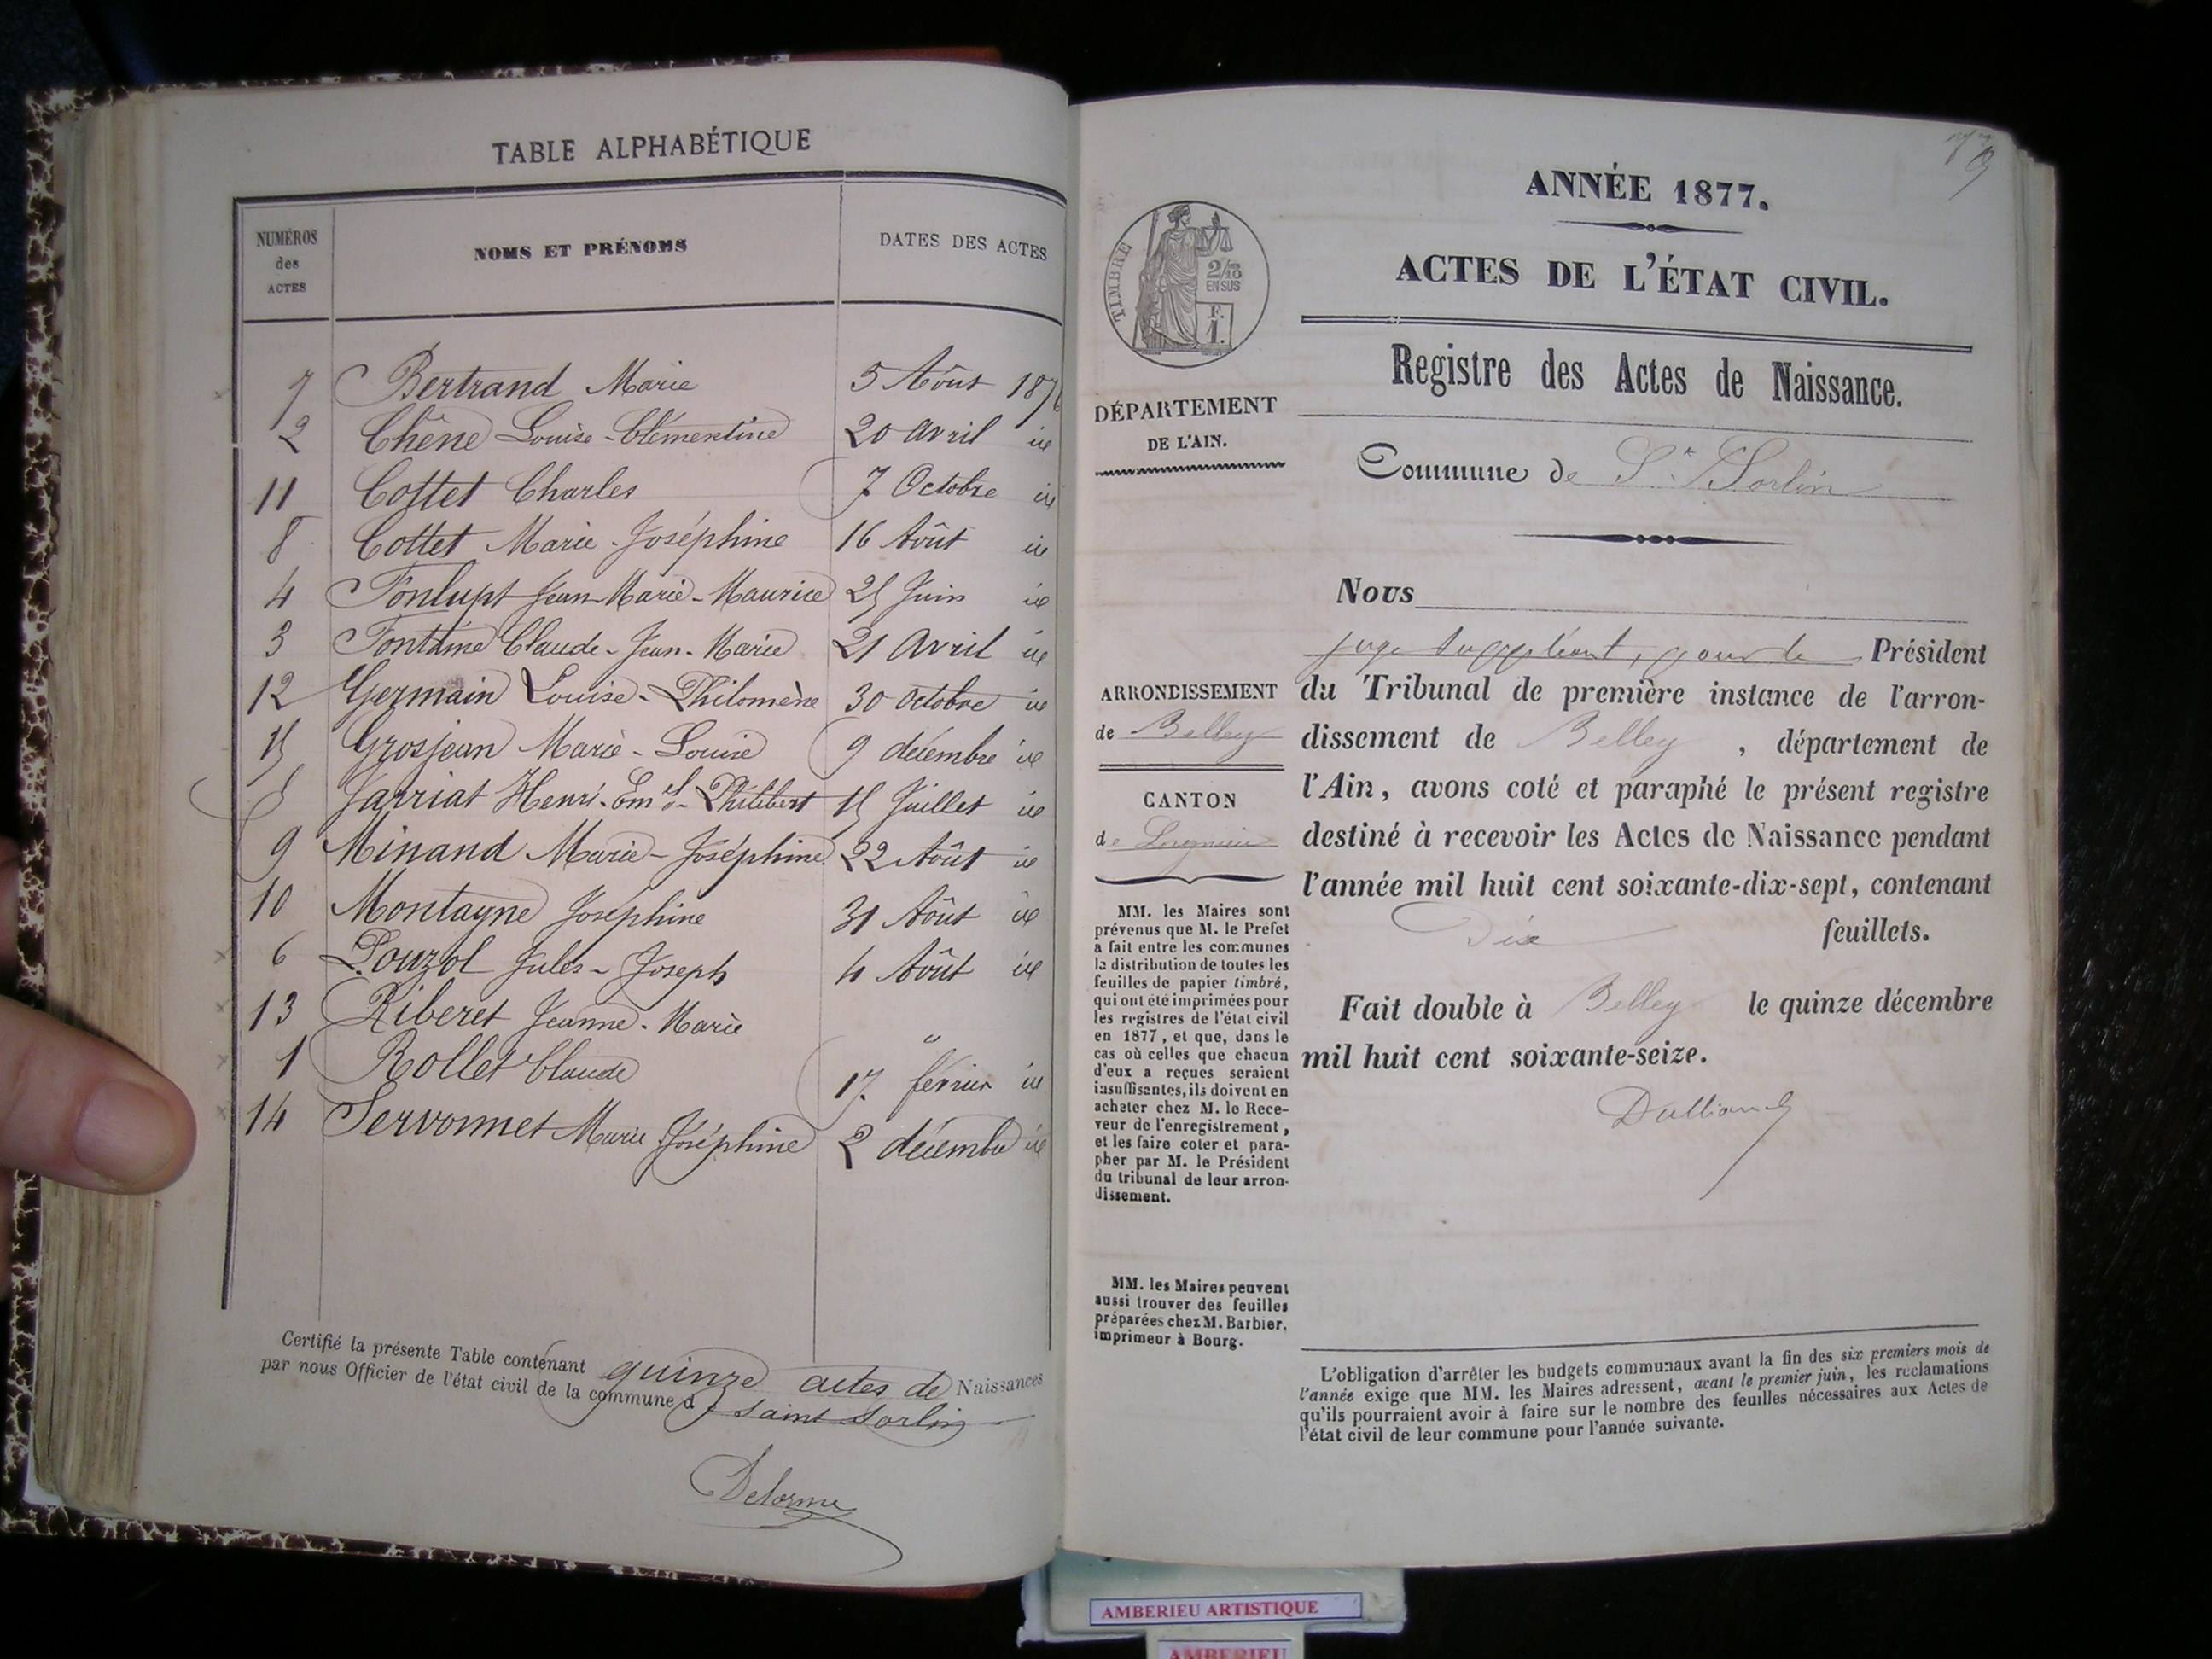 TABLE ALPHABÉTIQUE
NUMÉROS des ACTES
NOMS ET PRÉNOMS
DATES DES ACTES
7 Bertrand Marie 5 Août 1876
2 Chêne Louise-Clémentine 20 avril id
11 Cottet Charles 7 Octobre id
8 Cottet Marie-Joséphine 16 Août id
4 Fonlupt Jean-Marie-Maurice 25 Juin id
3 Fontaine Claude-Jean-Marie 21 Avril id
12 Germain Louise-Philomène 30 octobre id
15 Grosjean Marie-Louise 9 décembre id
5 Jarriat Henri-Em.el-Philibert 15 Juillet id
9 Minand Marie-Joséphine 22 Août id
10 Montagne Joséphine 31 Août id
6 Pouzol Jules-Joseph 4 Août id
13 Riberet Jeanne-Marie "
1 Rollet Claude 17 février id
14 Servonnet Marie Joséphine 2 décembre id
Certifié la présente Table contenant quinze actes de Naissances
par nous Officier de l'état civil de la commune d saint Sorlin
Delorme
ANNÉE 1877.
ACTES DE L'ÉTAT CIVIL.
TIMBRE
2/10
EN SUS
F.
1.
Registre des Actes de Naissance.
DÉPARTEMENT
DE L'AIN.
Commune de St Sorlin
Nous
juge suppléant, pour le Président
ARRONDISSEMENT
de Belley
du Tribunal de première instance de l'arron-
dissement de Belley, département de
l'Ain, avons coté et paraphé le présent registre
destiné à recevoir les Actes de Naissance pendant
l'année mil huit cent soixante-dix-sept, contenant
Dix feuillets.
Fait double à Belley le quinze décembre
mil huit cent soixante-seize.
CANTON
de Lagnieu
MM. les Maires sont
prévenus que M. le Préfet
a fait entre les communes
la distribution de toutes les
feuilles de papier timbré,
qui ont été imprimées pour
les registres de l'état civil
en 1877, et que, dans le
cas où celles que chacun
d'eux a reçues seraient
insuffisantes, ils doivent en
acheter chez M. le Rece-
veur de l'enregistrement,
et les faire coter et para-
pher par M. le Président
du tribunal de leur arron-
dissement.
MM. les Maires peuvent
aussi trouver des feuilles
préparées chez M. Barbier,
imprimeur à Bourg.
L'obligation d'arrêter les budgets communaux avant la fin des six premiers mois de
l'année exige que MM. les Maires adressent, avant le premier juin, les réclamations
qu'ils pourraient avoir à faire sur le nombre des feuilles nécessaires aux Actes de
l'état civil de leur commune pour l'année suivante.
AMBERIEU ARTISTIQUE
AMBERIEU